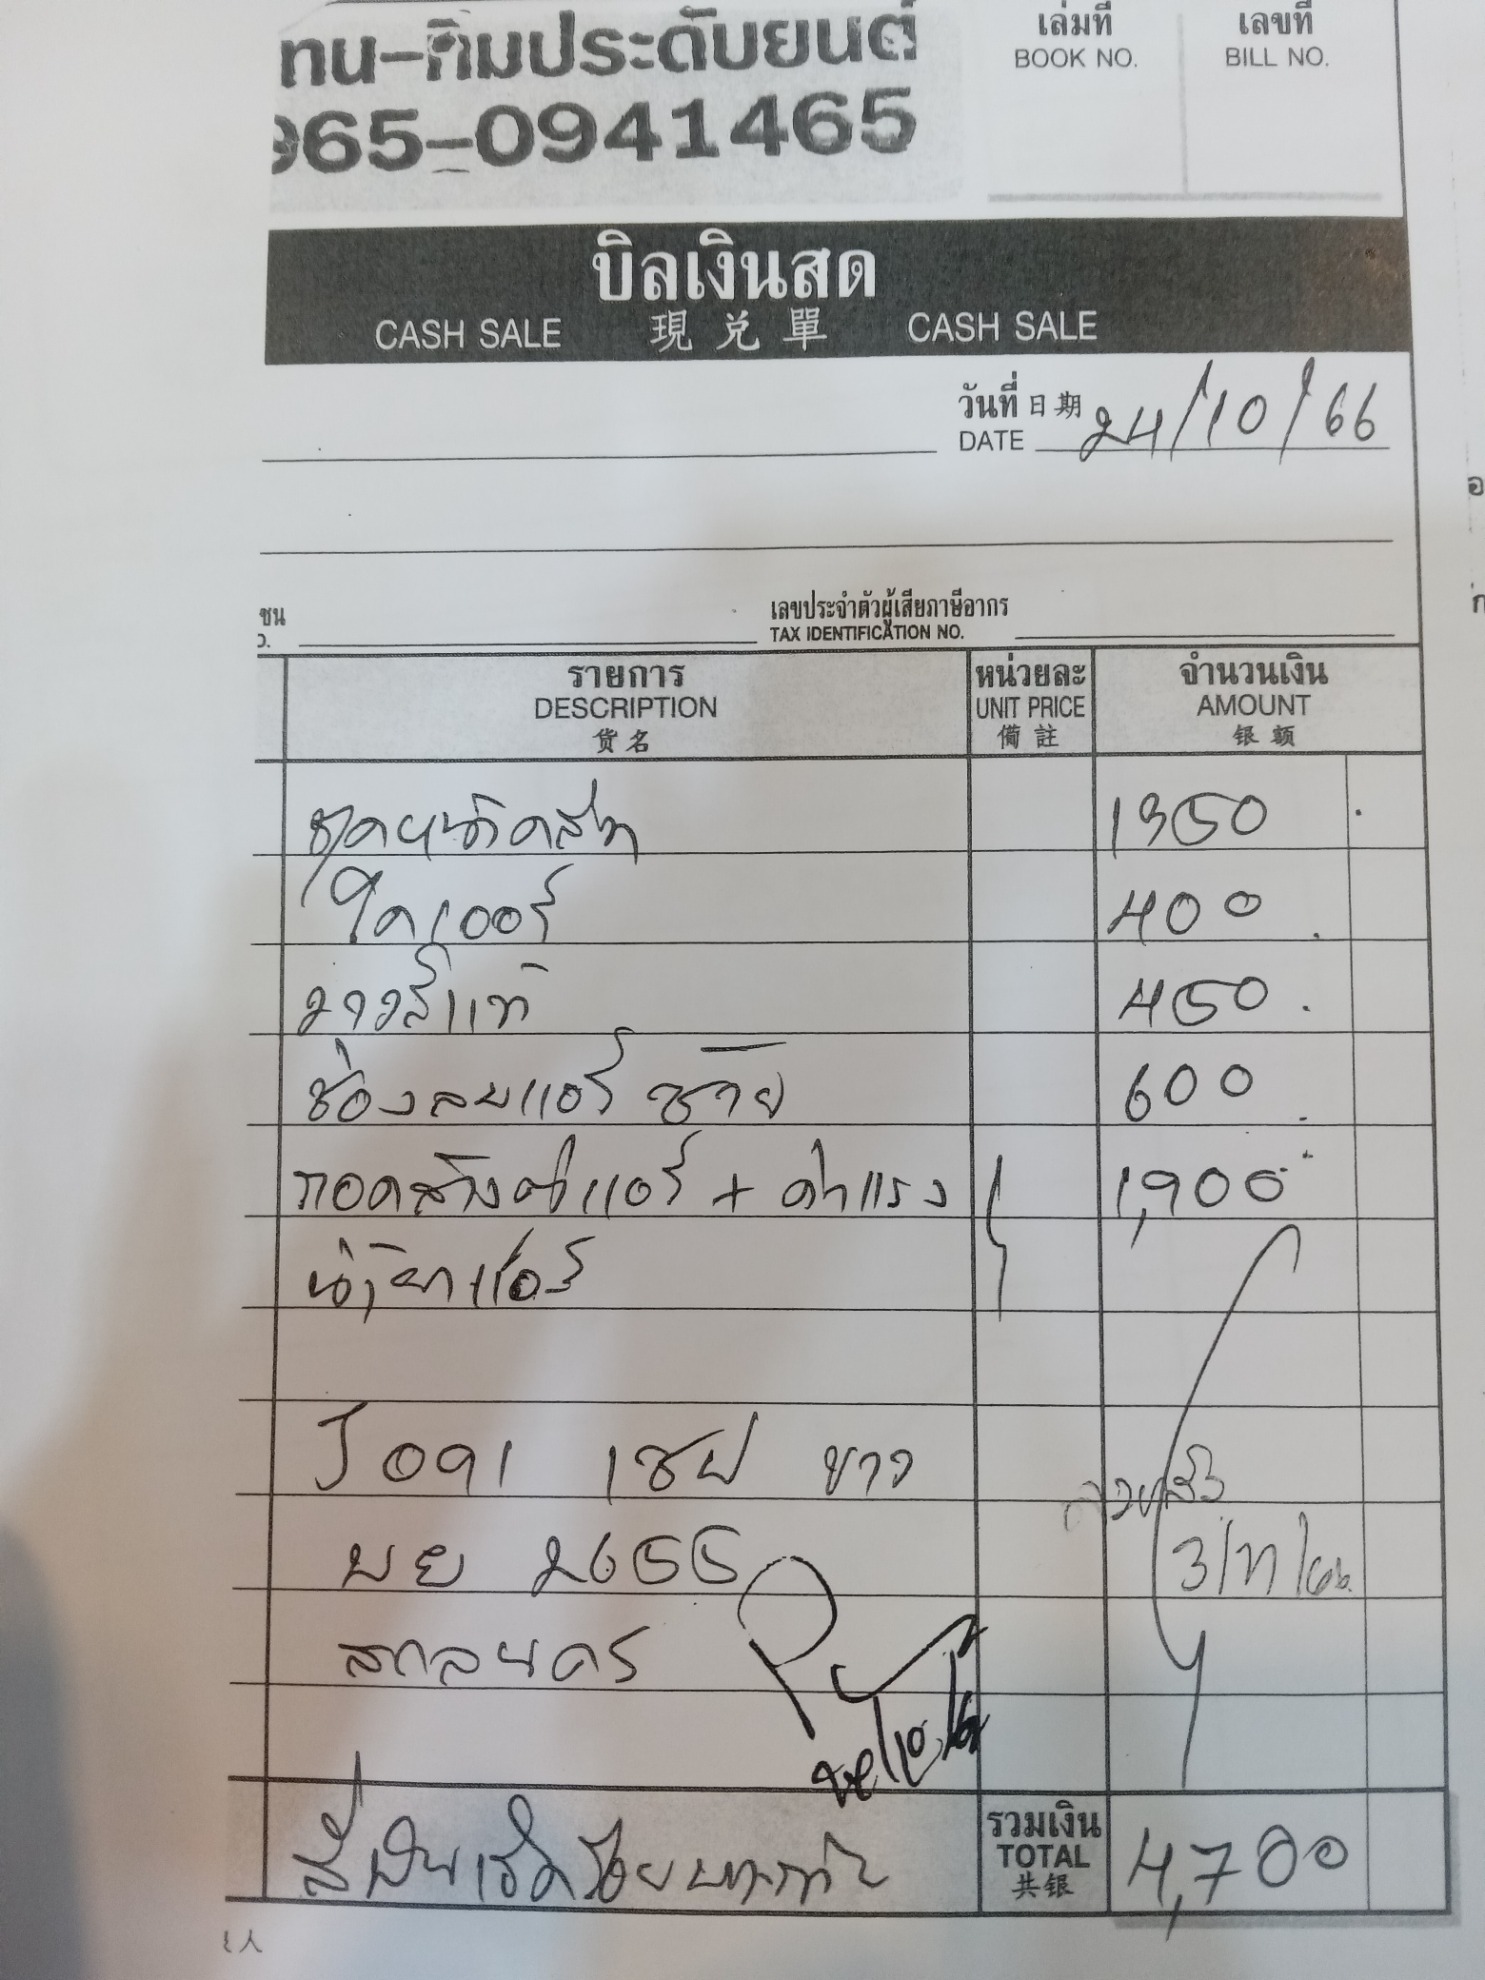 ทน-กิมประดับยนต์
965-0941465
เล่มที่ เลขที่
BOOK NO. BILL NO.
บิลเงินสด
CASH SALE 現兌單 CASH SALE
วันที่ 日期
DATE 24/10/66
ชน เลขประจำตัวผู้เสียภาษีอากร
TAX IDENTIFICATION NO.
รายการ หน่วยละ จำนวนเงิน
DESCRIPTION UNIT PRICE AMOUNT
货名 備註 银额
1350
ไดเออร์ 400
วาวส์แท้ 450
ช่องลมแอร์ ซ้าย 600
ถอดล้างตู้แอร์ + ค่าแรง 1,900
น้ำยาแอร์
J 091 เชฟ ขาว
บย 2655
สกลนคร
รวมเงิน
TOTAL 4,700
共银